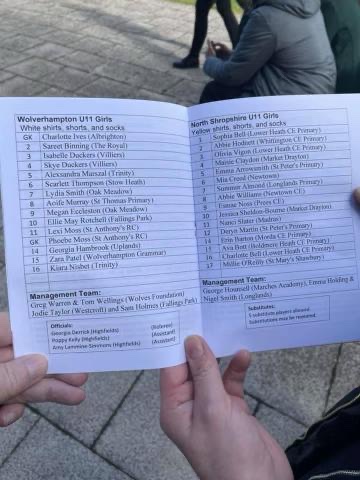 Wolverhampton U11 Girls
White shirts, shorts, and socks
GK Charlotte Ives (Albrighton)
2 Sareet Binning (The Royal)
3 Isabelle Duckers (Villiers)
4 Skye Duckers (Villiers)
5 Alexsandra Marszal (Trinity)
6 Scarlett Thompson (Stow Heath)
7 Lydia Smith (Oak Meadow)
8 Aoife Murray (St Thomas Primary)
9 Megan Eccleston (Oak Meadow)
10 Ellie May Rotchell (Fallings Park)
11 Lexi Moss (St Anthony's RC)
GK Phoebe Moss (St Anthony's RC)
14 Georgia Hambrook (Uplands)
15 Zara Patel (Wolverhampton Grammar)
16 Kiara Nisbet (Trinity)
Management Team:
Greg Warren & Tom Wellings (Wolves Foundation)
Jodie Taylor (Westcroft) and Sam Holmes (Fallings Park)
Officials:
Georgia Derrick (Highfields) (Referee)
Poppy Kelly (Highfields) (Assistant)
Amy Lammine-Simmons (Highfields) (Assistant)
North Shropshire U11 Girls
Yellow shirts, shorts, and socks
1 Sophia Bell (Lower Heath CE Primary)
2 Abbie Hodnett (Whittington CE Primary)
3 Olivia Vigon (Lower Heath CE Primary)
4 Maisie Claydon (Market Drayton)
5 Emma Arrowsmith (St Peter's Primary)
6 Mia Creed (Newtown)
7 Summer Almond (Longlands Primary)
8 Abbie Williams (Newtown CE Primary)
9 Fearne Noss (Prees CE)
10 Jessica Sheldon-Bourne (Market Drayton)
11 Nanci Slater (Madras)
12 Deryn Martin (St Peter's Primary)
14 Erin Barton (Morda CE Primary)
15 Ava Bont (Holdheath CE Primary)
16 Charlotte Bell (Lower Heath CE Primary)
17 Millie O'Reilly (St Mary's Shawbury)
Management Team:
George Hounsell (Marches Academy), Emma Holding &
Nigel Smith (Longlands)
Substitutes:
5 substitute players allowed.
Substitutions may be repeated.